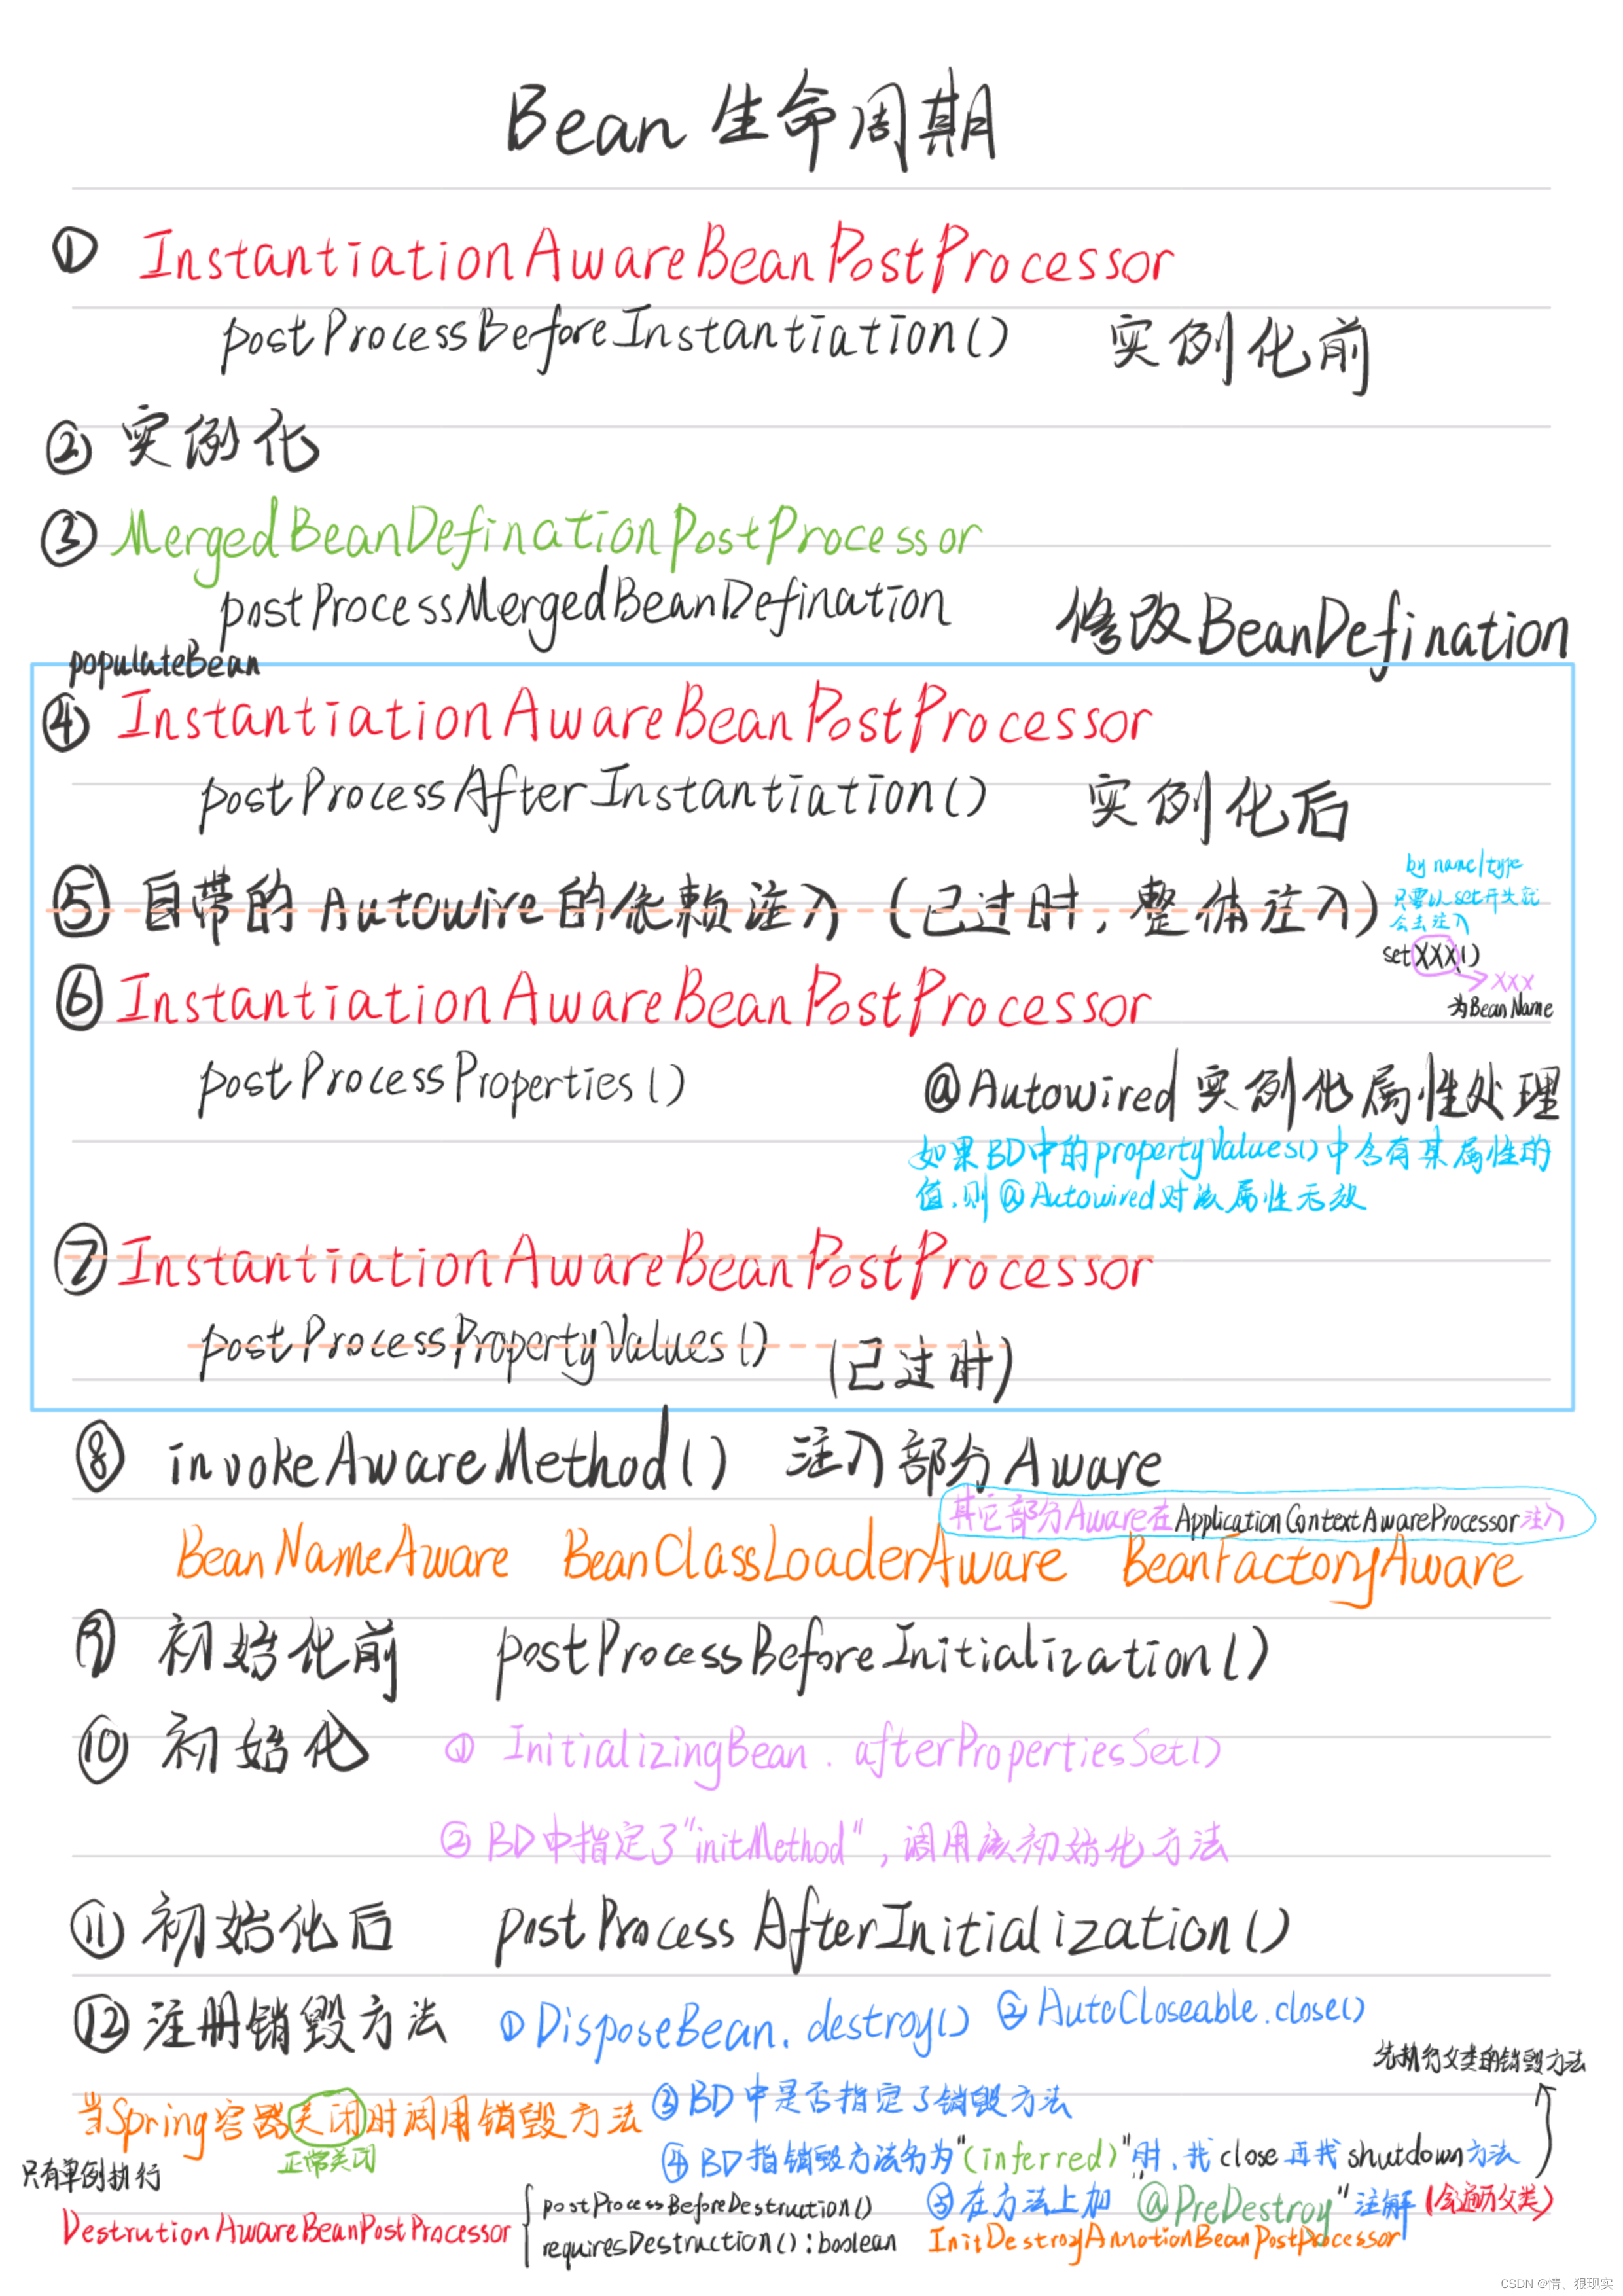 Bean 生命周期
① InstantiationAwareBeanPostProcessor
postProcessBeforeInstantiation() 实例化前
② 实例化
③ MergedBeanDefinationPostProcessor
postProcessMergedBeanDefination 修改BeanDefination
populateBean
④ InstantiationAwareBeanPostProcessor
postProcessAfterInstantiation() 实例化后
⑤ 自带的 Autowire 的依赖注入 (已过时, 整体注入)
by name/type
只要以set开头就
会去注入
setXXX()
XXX
为BeanName
⑥ InstantiationAwareBeanPostProcessor
postProcessProperties() @Autowired 实例化属性处理
如果BD中的propertyValues()中含有某属性的
值,则@Autowired对该属性无效
⑦ InstantiationAwareBeanPostProcessor
postProcessPropertyValues() (已过时)
⑧ invokeAwareMethod() 注入部分Aware
其它部分Aware在ApplicationContextAwareProcessor注入
BeanNameAware BeanClassLoaderAware BeanFactoryAware
⑨ 初始化前 postProcessBeforeInitialization()
⑩ 初始化 ① InitializingBean.afterPropertiesSet()
② BD中指定了"initMethod",调用该初始化方法
⑪ 初始化后 postProcessAfterInitialization()
⑫ 注册销毁方法 ① DisposeBean.destroy() ② AutoCloseable.close()
先执行父类的销毁方法
当Spring容器关闭时调用销毁方法 ③ BD中是否指定了销毁方法
正常关闭
④ BD指销毁方法名为"(inferred)"时,找close再找shutdown方法
只有单例执行
⑤ 在方法上加"@PreDestroy"注解(会遍历父类)
DestrutionAwareBeanPostProcessor
postProcessBeforeDestruction()
requiresDestruction():boolean
InitDestroyAnnotionBeanPostProcessor
CSDN @情、狠现实